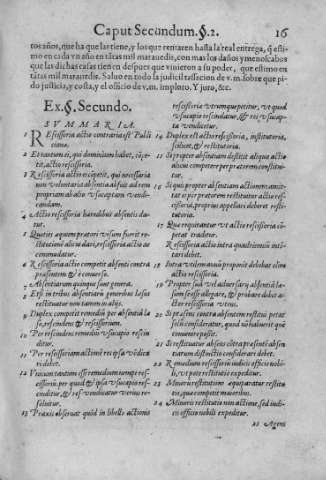 Caput Secundum. §. 2. 16
tos años, que ha que las tiene, y los que retiuren hasta la real entrega, q̃ esti-
mo en cada vn año en tãtas mil marauedis, con mas los daños y menoscabos
que las dichas casas tien en despues que vinieron a su poder, que estimo en
tãtas mil marauedis. Saluo en todo la judicil tassacion de v. m. sobre que pi-
do justicia, y costa, y el officio de v. m. imploro. Y juro, &c.
Ex. §. Secundo.
SVMMARIA.
1 REscissoria actio contraria est Publi
ciana.
2 Et tantum ei, qui dominium habet, cõpe-
tit, actio rescissoria.
3 Rescissoria actio cõpetit, qui necessaria
non voluntaria absentia abfuit ad rem
propriam ab alio vsucaptam vendi-
candam.
4 Actio rescissoria hæredibus absentis da-
tur.
5 Quoties æquum prætori visum fuerit re-
stitutionē alicui dari, rescissoria actio ac
commodatur.
6 Rescissoria actio competit absenti contra
præsentem & è conuerso.
7 Absentiarum quinque sunt genera.
8 Etsi in tribus absentiarum generibus læsus
restituatur non tamen in duobus.
9 Duplex competit remedium per absentiã læ
so, rescindens & rescissorium.
10 Per rescindens remedium vsucapio rescin
ditur.
11 Per rescissoriam actionē res ipsa vẽdica
ri debet.
12 Vnicum tantùm esse remedium iunge res-
cissoriū, per quod & ipsa vsucapio res-
cinditur, & res vendicatur verius re-
soluitur.
13 Praxis obseruat quòd in libello actionis
rescissoriæ vtrumque petitur, vt quod
vsucapio rescindatur, & res vsucap-
ta vendicetur.
14 Duplex est actio rescissoria, institutoria,
scilicet, & restitutoria.
15 Si propter absentiam desistit aliqua actio
alicui competere per prætorem constitui-
tur.
16 Si quis propter absentiam actionem amit-
tat & per prætorem restituitur actio res-
cissoria, propriùs appellari debéret resti-
tutoria.
17 Quæ requirantur vt actio rescissoria cõ-
petat traditur.
Rescissoria actio intra quadriennium inti-
tari debet.
18 Intra vtilem annū proponit debebat olim
actio rescissoria.
19 Propter suā vel aduersarij absentiā læ-
sum se esse allegare, & probare debet ac-
tor rescissoria vtens.
20 Si præsens contra absentem restitui petat
istis consideratur, quod nõ habuerit quē
conuenire possit.
21 Si restituatur absens cõtra præsentē absen
tiarum distinctio considerari debet.
22 Remedium rescissoriū iudicis officio nobi-
li, vt pote restitutio expeditur.
23 Minoris restitutione æquiparatur restitu
tio, quæ competit maioribus.
24 Minoris restitutio non actione, sed iudi-
cis officio nobili expeditur.
25 Agens